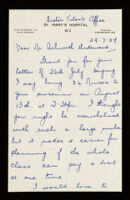 Sister Tutor's Office
ST. MARY'S HOSPITAL
W.2
29.7.54
Dear Dr Ashworth Underwood
Thank you for your
letter of 26th July saying I
may bring 34 Nurses to
your museum on August
13th at 2.15pm. I thought
you might be overwhelmed
with such a large number
but it makes it easier for
planning if the whole
class can pay a visit
at one time.
I would love to